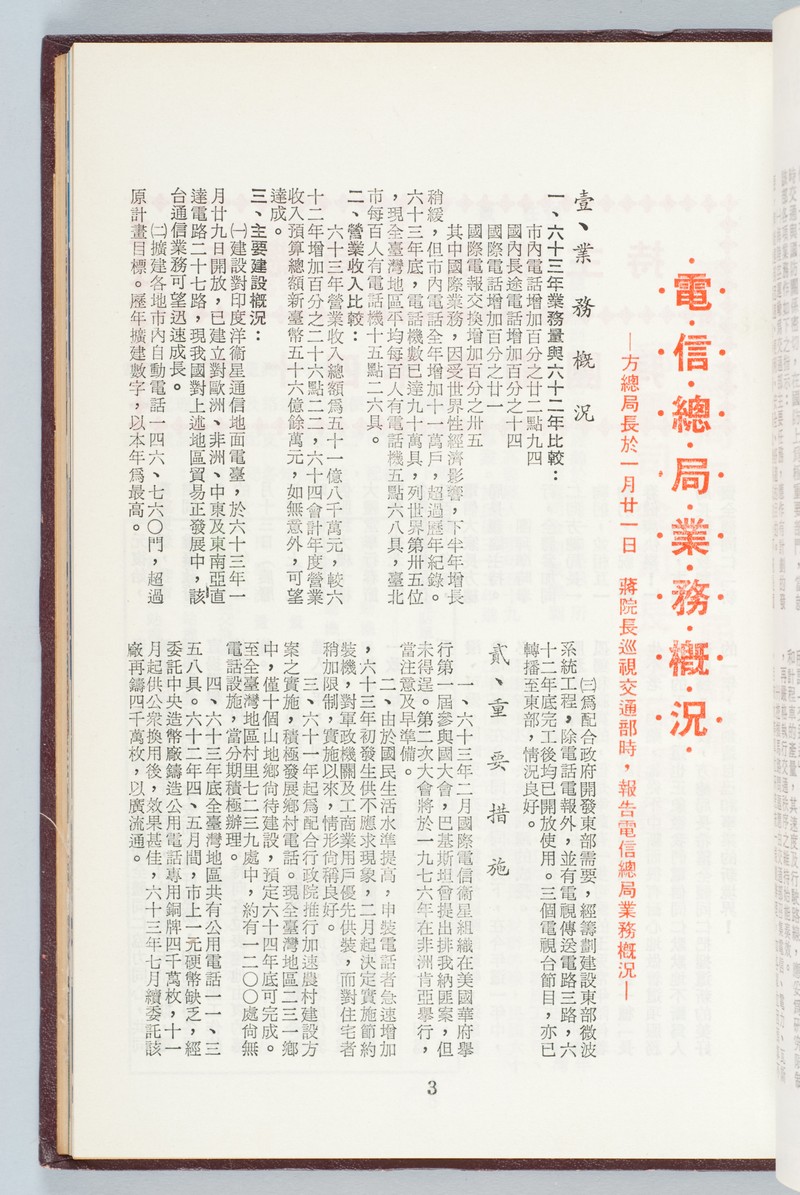 電信總局業務概況
—方總局長於一月廿一日　蔣院長巡視交通部時，報告電信總局業務概況—
壹、業務概況
一、六十三年業務量與六十二年比較：
市內電話增加百分之廿二點九四
國內長途電話增加百分之十四
國際電話增加百分之廿一
國際電報交換增加百分之卅五
其中國際業務，因受世界性經濟影響，下半年增長
稍緩，但市內電話全年增加十一萬戶，超過歷年紀錄。
六十三年底，電話機數已達九十萬具，列世界第卅五位
，現全臺灣地區平均每百人有電話機五點六八具，臺北
市每百人有電話機十五點二六具。
二、營業收入比較：
六十三年營業收入總額爲五十一億八千萬元，較六
十二年增加百分之二十六點二二，六十四會計年度營業
收入預算總額新臺幣五十六億餘萬元，如無意外，可望
達成。
三、主要建設概況：
㈠建設對印度洋衛星通信地面電臺，於六十三年一
月廿九日開放，已建立對歐洲、非洲、中東及東南亞直
達電路二十七路，現我國對上述地區貿易正發展中，該
台通信業務可望迅速成長。
㈡擴建各地市內自動電話一四六、七六〇門，超過
原計畫目標。歷年擴建數字，以本年爲最高。
㈢爲配合政府開發東部需要，經籌劃建設東部微波
系統工程，除電話電報外，並有電視傳送電路三路，六
十二年底完工後均已開放使用。三個電視台節目，亦已
轉播至東部，情況良好。
貳、重要措施
一、六十三年二月國際電信衛星組織在美國華府舉
行第一屆參與國大會，巴基斯坦曾提出排我納匪案，但
未得逞。第二次大會將於一九七六年在非洲肯亞舉行，
當注意及早準備。
二、由於國民生活水準提高，申裝電話者急速增加
，六十三年初發生供不應求現象，二月起決定實施節約
裝機，對軍政機關及工商業用戶優先供裝，而對住宅者
稍加限制，實施以來，情形尙稱良好。
三、六十一年起爲配合行政院推行加速農村建設方
案之實施，積極發展鄉村電話。現全臺灣地區二三一鄉
中，僅十個山地鄉尙待建設，預定六十四年底可完成。
至全臺灣地區村里七二三九處中，約有一二〇〇處尙無
電話設施，當分期積極辦理。
四、六十三年底全臺灣地區共有公用電話一一、三
五八具。六十二年四、五月間，市上一元硬幣缺乏，經
委託中央造幣廠鑄造公用電話專用銅牌四千萬枚，十一
月起供公衆換用後，效果甚佳，六十三年七月續委託該
廠再鑄四千萬枚，以廣流通。
3